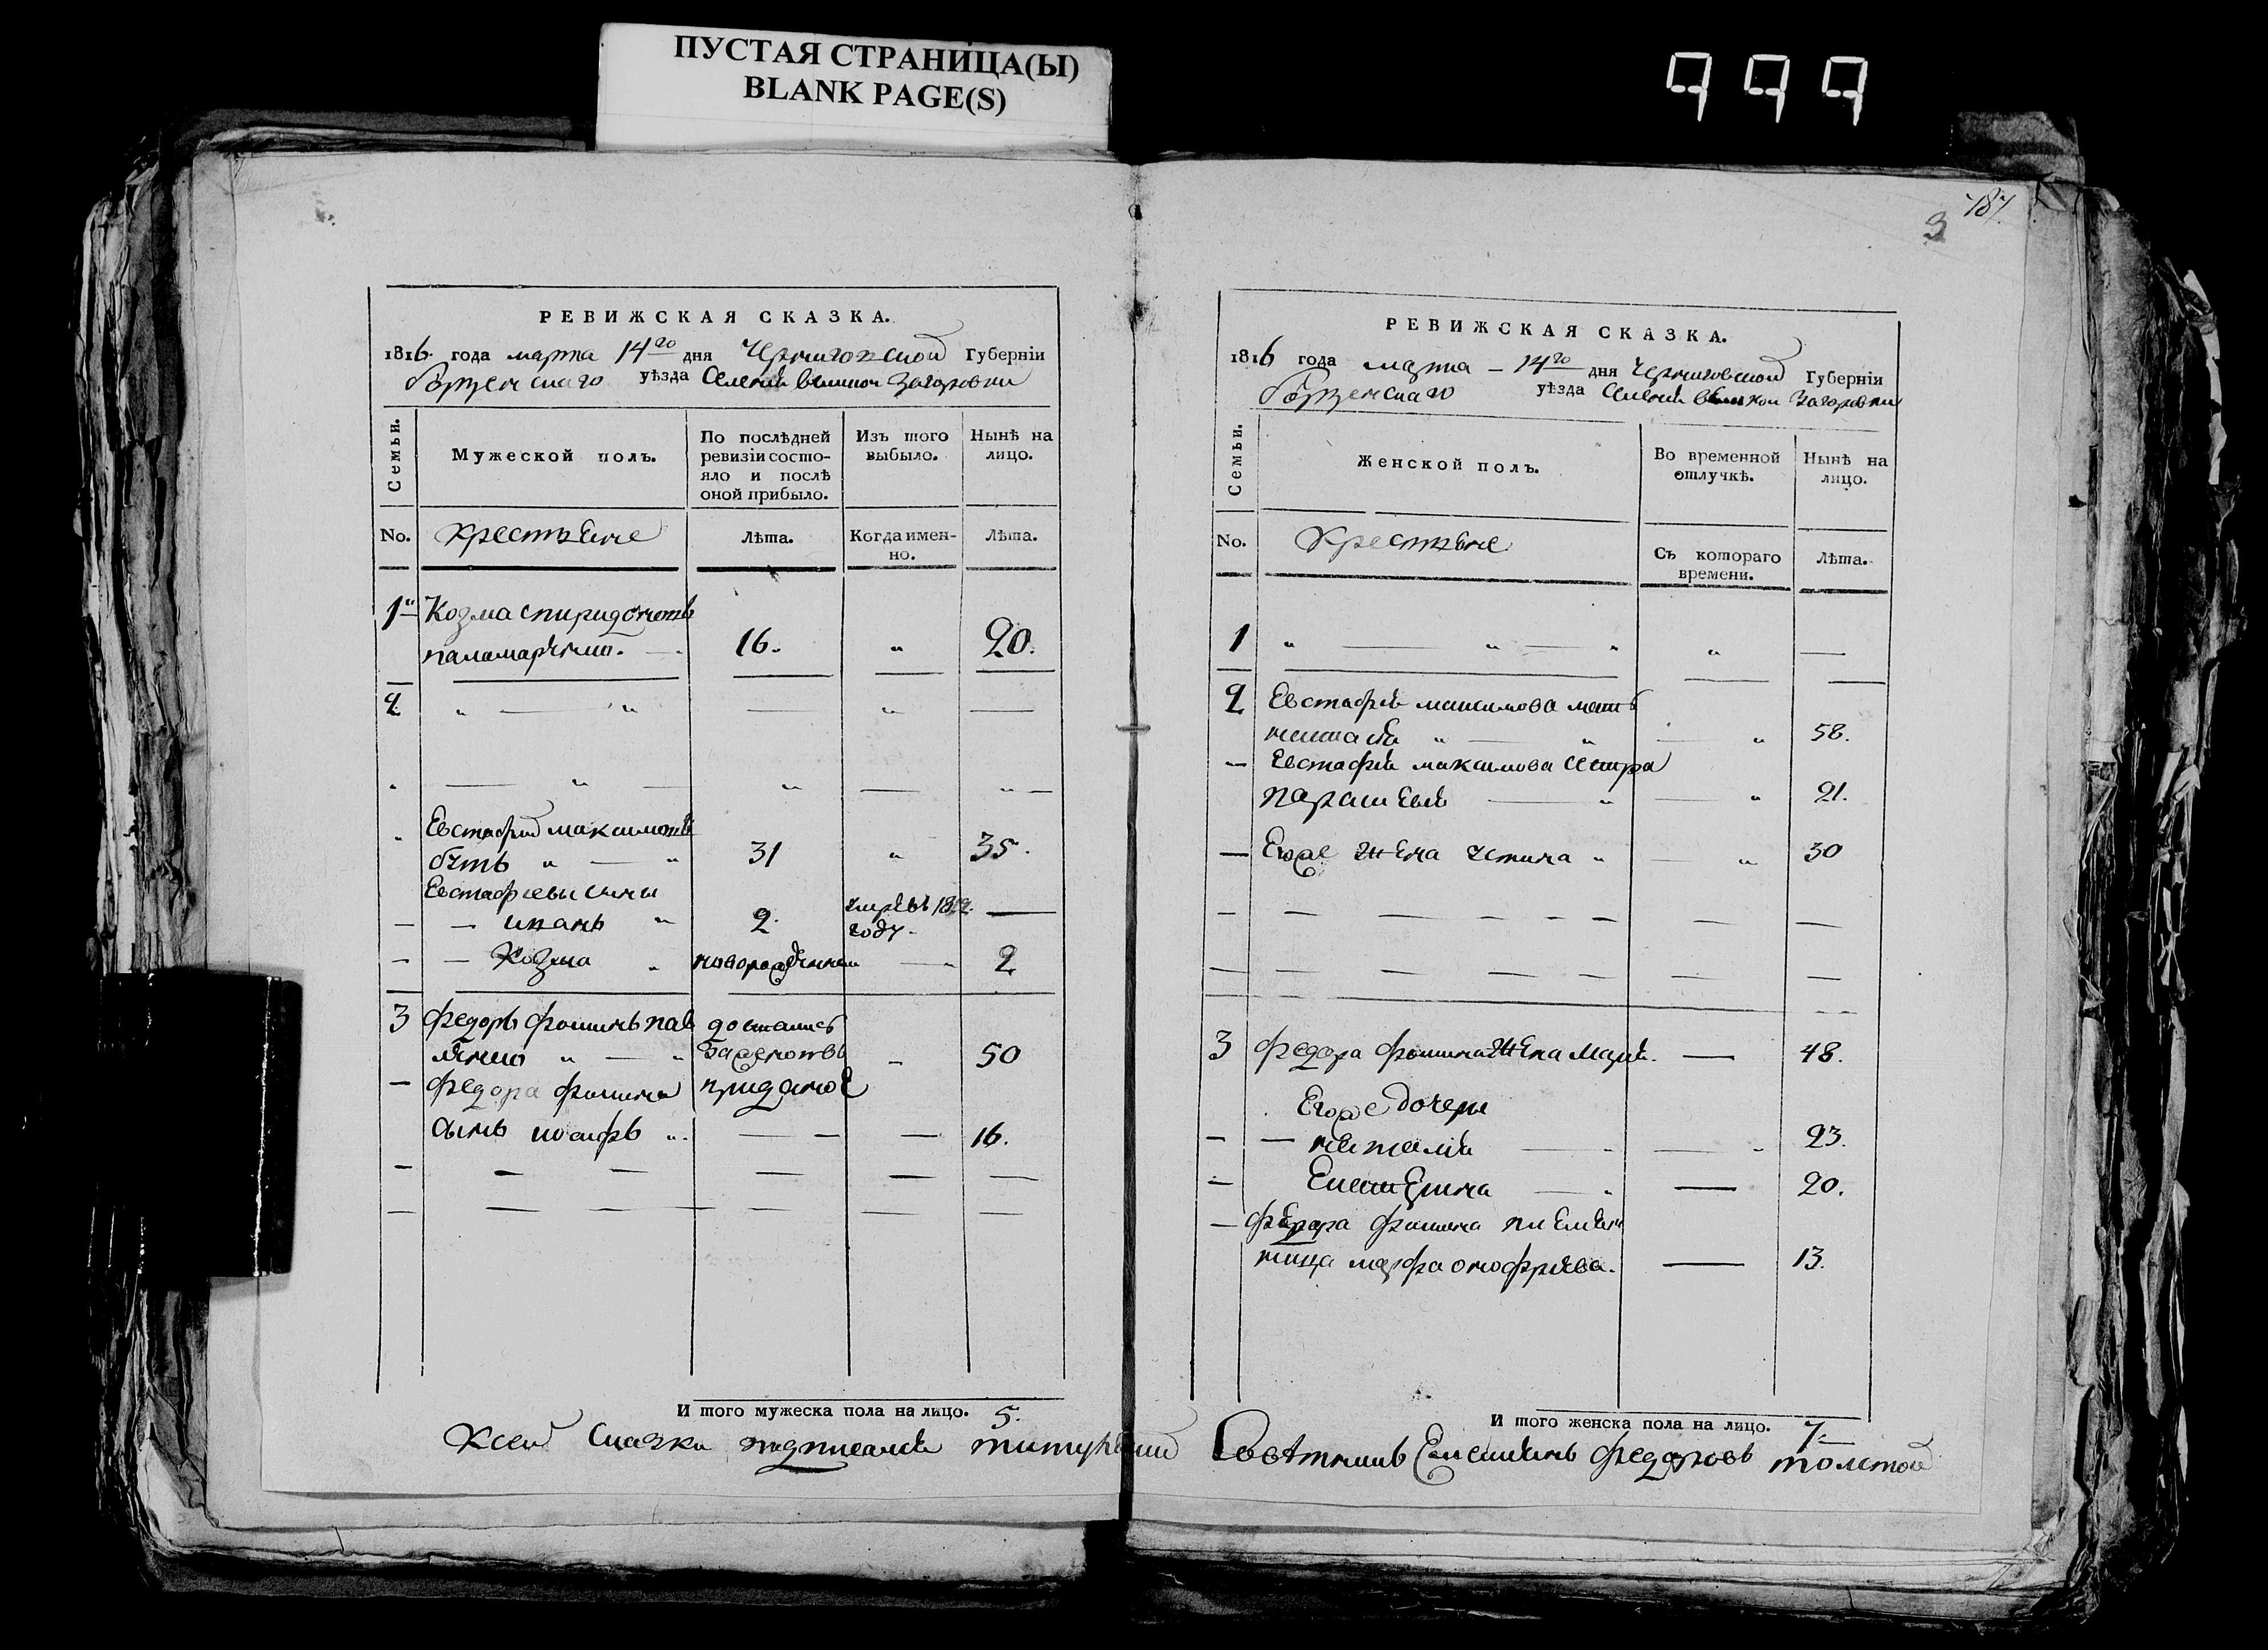 ПУСТАЯ СТРАНИЦА(Ы)
BLANK PAGE(S)
999
787
3
РЕВИЖСКАЯ СКАЗКА.
1816. года марта 14го дня Черниговской Губерніи
Борзенскаго уѣзда селенія великой Загоровки
Семьи.
Мужеской полъ.
По послѣдней ревизіи состояло и послѣ оной прибыло.
Изъ того выбыло.
Нынѣ на лицо.
No.
Крестьяне
Лѣта.
Когда именно.
Лѣта.
1й Козма спиридоновъ
паламаренко. 16. " 20.
2
Евстафий максимовъ
бутъ " — " 31 " 35.
Евстафиевы сыны
— иванъ " 2. умре въ 1812. году.
— Козма " новорожденъ 2
3 федоръ фоминъ пав достался
ленко " — " За женою въ 50
— федора фомина приданое
сынъ иосифъ ". 16.
И того мужеска пола на лицо. 5.
РЕВИЖСКАЯ СКАЗКА.
1816 года марта – 14го дня Черниговской Губерніи
Борзенскаго уѣзда селенія великой Загоровки
Семьи.
Женской полъ.
Во временной отлучкѣ.
Нынѣ на лицо.
No.
Крестьяне
Съ котораго времени.
Лѣта.
1
2 Евстафія максимова мать
" — " 58.
— Евстафия максимова сестра
параскевія " 21.
— Егоже Жена устина " 30
3 федора фомина Жена Марія. — 48.
Егоже дочери
— наталія 23.
Екатерина 20.
— федора фомина племен
ница марфа онофриева. — 13.
И того женска пола на лицо. 7.
К сей Сказки подписался титулярный Советникъ федоровъ толстой